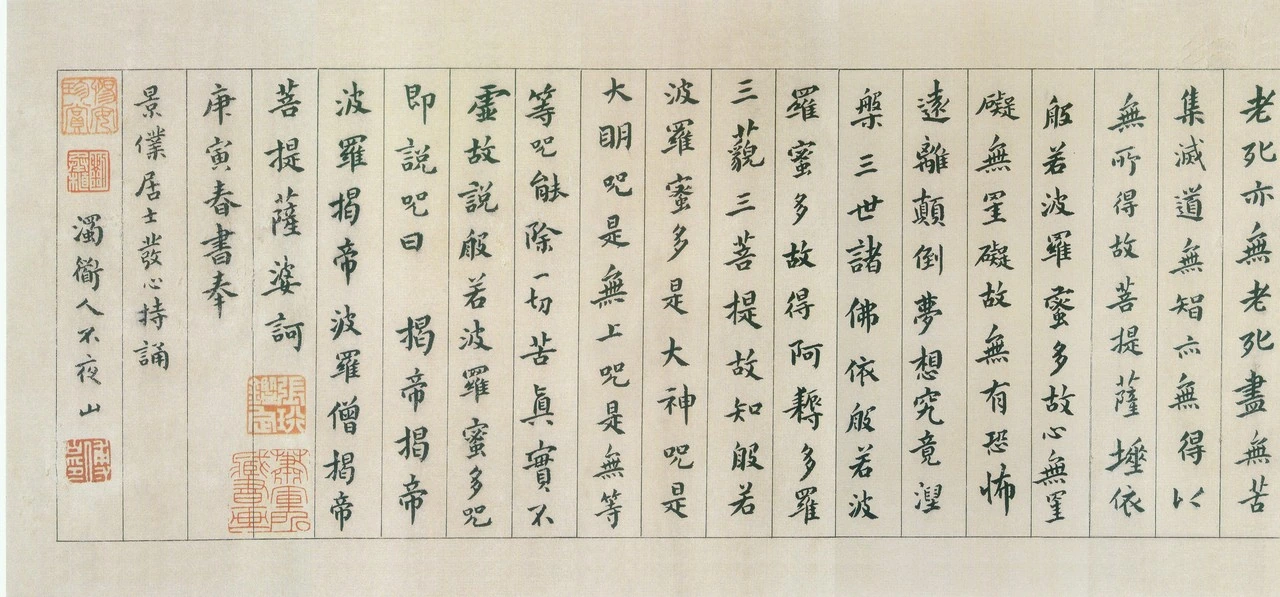 老死亦無老死盡無苦
集滅道無智亦無得以
無所得故菩提薩埵依
般若波羅蜜多故心無罣
礙無罣礙故無有恐怖
遠離顛倒夢想究竟湼
槃三世諸佛依般若波
羅蜜多故得阿耨多羅
三藐三菩提故知般若
波羅蜜多是大神咒是
大明咒是無上咒是無等
等咒能除一切苦真實不
虛故說般若波羅蜜多咒
即說咒曰 揭帝揭帝
波羅揭帝波羅僧揭帝
菩提薩婆訶
庚寅春書奉
景僕居士發心持誦
濁衟人不夜山